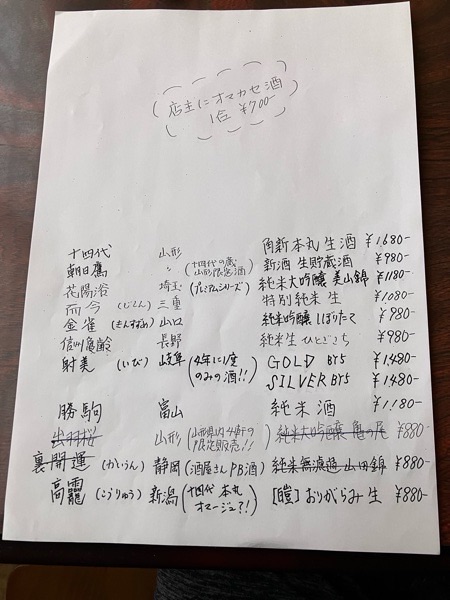 店主にオマカセ酒
1合 ¥700-
十四代 山形 角新本丸 生酒 ¥1,680-
朝日鷹 〃 (十四代の蔵 山形限定酒) 新酒 生貯蔵酒 ¥980-
花陽浴 埼玉 (プレミアムシリーズ) 純米大吟醸 美山錦 ¥1180-
而今 (じこん) 三重 特別純米 生 ¥1,080-
金雀 (きんすずめ) 山口 純米吟醸 しぼりたて ¥980-
信州亀齢 長野 純米生 ひとごこち ¥980-
射美 (いび) 岐阜 (4年に1度のみの酒!!) GOLD BY5 ¥1,480-
SILVER BY5 ¥1,480-
勝駒 富山 純米酒 ¥1,180-
出羽桜 山形 (山形県内4軒の限定販売!!) 純米大吟醸 亀の尾 ¥880-
裏開運 (かいうん) 静岡 (酒屋さんPB酒) 純米無濾過 山田錦 ¥880-
高龗 (こうりゅう) 新潟 (十四代 本丸 オマージュ?!) [暟] おりがらみ 生 ¥880-